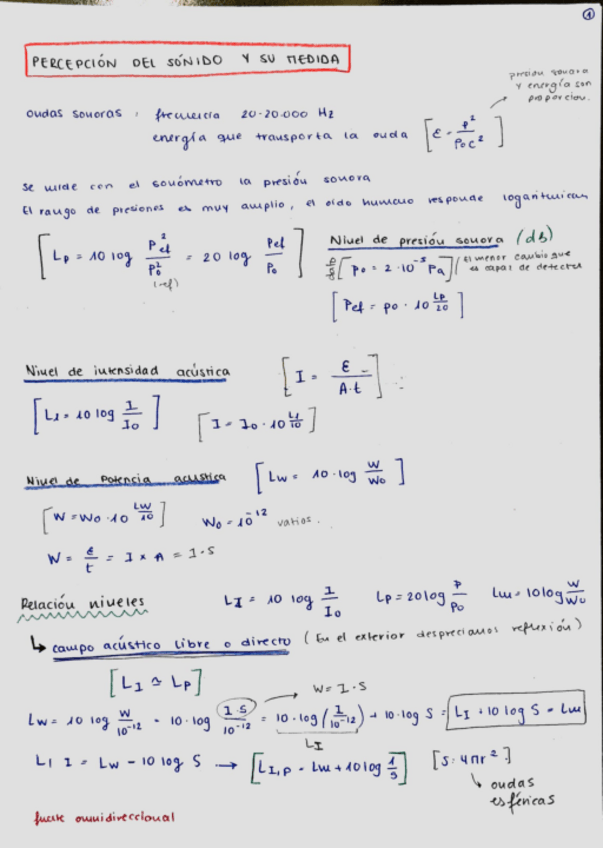 1
PERCEPCIÓN DEL SONIDO Y SU MEDIDA
presión sonora
y energía son
proporcion.
ondas sonoras : frecuencia 20-20.000 Hz
energía que transporta la onda [ε = p²/ρ₀c²]
se mide con el sonómetro la presión sonora
El rango de presiones es muy amplio, el oído humano responde logarítmicam
[Lp = 10 log Pef²/P₀² = 20 log Pef/P₀]
(ref)
Nivel de presión sonora (db)
dato [p₀ = 2·10⁻⁵ Pa] El menor cambio que es capaz de detectar
[Pef = p₀ · 10^(Lp/20)]
Nivel de intensidad acústica [I = ε/A·t]
[L_I = 10 log I/I₀] [I = I₀ · 10^(L_I/10)]
Nivel de Potencia acústica [Lw = 10 · log W/W₀]
[W = W₀ · 10^(Lw/10)] W₀ = 10⁻¹² vatios.
W = ε/t = I × A = I·S
Relación niveles L_I = 10 log I/I₀ Lp = 20 log P/P₀ Lw = 10 log W/W₀
↳ campo acústico libre o directo (En el exterior despreciamos reflexión)
[L_I ≃ Lp] → W = I·S
Lw = 10 log W/10⁻¹² = 10·log I·S/10⁻¹² = 10·log(I/10⁻¹²) + 10·log S = L_I + 10 log S = Lw
L_I
L_I = Lw - 10 log S → [L_I,p = Lw + 10 log 1/S] [S = 4πr²]
↳ ondas
esféricas
fuente omnidireccional